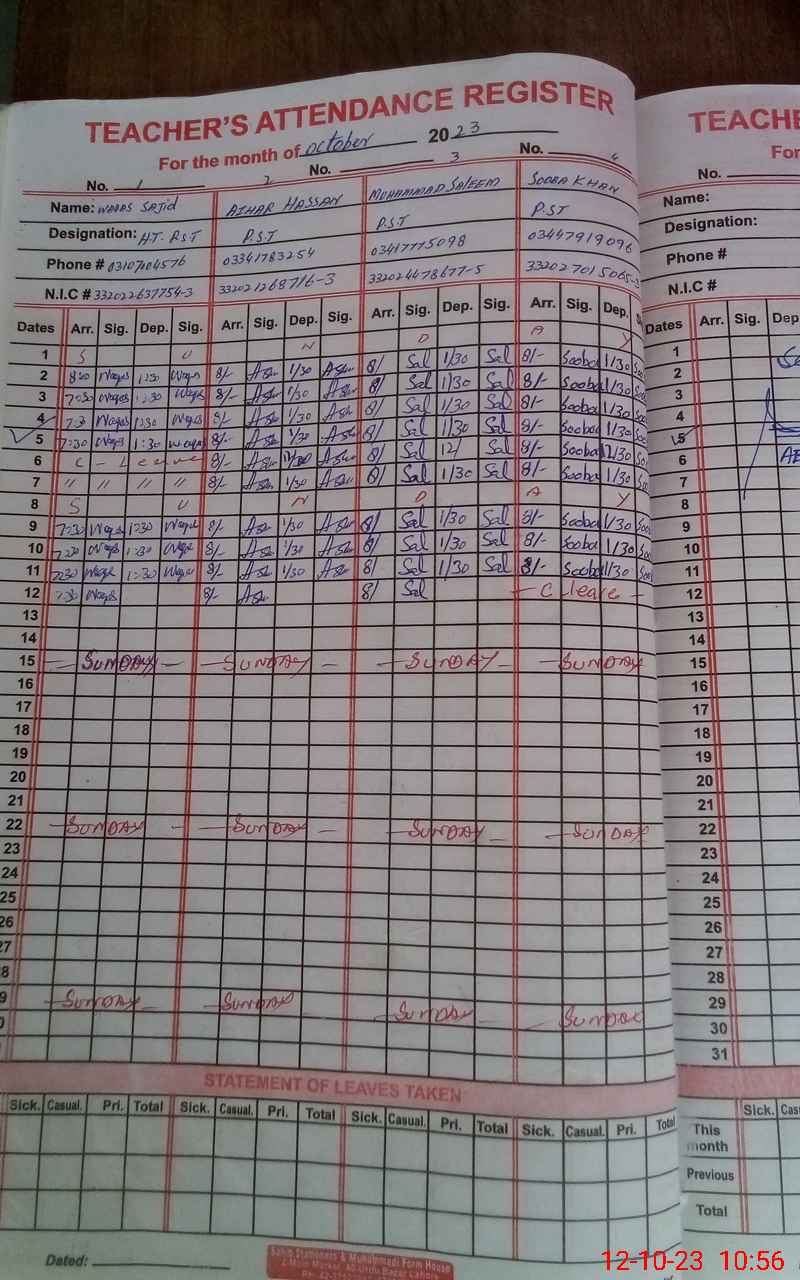 TEACHER'S ATTENDANCE REGISTER
For the month of October 2023
No. 1 2 No. 3 No. 4
Name: WAQAS SAJID AZHAR HASSAN MUHAMMAD SALEEM SOOBA KHAN
Designation: HT. PST P.S.T P.S.T P.S.T
Phone # 03341783254 03417775098 03447919096
N.I.C # 332022637754-3 332021268716-3 332024478677-5
Dates Arr. Sig. Dep. Sig. Arr. Sig. Dep. Sig. Arr. Sig. Dep. Sig. Arr. Sig. Dep.
1 S U N D A Y
2 8:00 Waqas 1:30 Waqas 8/- 1/30 8/ Sal 1/30 Sal 8/- Sooba 1/30
3 7:30 Waqas 1:30 Waqas 8/- 1/30 8/ Sal 1/30 Sal 8/- Sooba 1/30
4 7:30 Waqas 1:30 Waqas 8/- 1/30 8/ Sal 1/30 Sal 8/- Sooba 1/30
5 7:30 Waqas 1:30 Waqas 8/- 1/30 8/ Sal 1/30 Sal 8/- Sooba 1/30
6 C - Leave 8/- 8/ Sal 12/ Sal 8/- Sooba 12/30
7 // // // // 8/- 1/30 8/ Sal 1/30 Sal 8/- Sooba 1/30
8 S U N D A Y
9 7:30 Waqas 1:30 Waqas 8/- 1/30 8/ Sal 1/30 Sal 8/- Sooba 1/30
10 7:30 Waqas 1:30 Waqas 8/- 1/30 8/ Sal 1/30 Sal 8/- Sooba 1/30
11 7:30 Waqas 1:30 Waqas 8/- 1/30 8/ Sal 1/30 Sal 8/- Sooba 1/30
12 7:30 Waqas 8/- 8/ Sal - C leave -
13
14
15 - SUNDAY - - SUNDAY - - SUNDAY - - SUNDAY
16
17
18
19
20
21
22 - SUNDAY - - SUNDAY - - SUNDAY - - SUNDAY
23
24
25
26
27
8
9 - SUNDAY - - SUNDAY - SUNDAY - - SUNDAY
STATEMENT OF LEAVES TAKEN
Sick. Casual. Pri. Total Sick. Casual. Pri. Total Sick. Casual. Pri. Total Sick. Casual. Pri. Total
Dated:
Sahib Stationers & Muhammadi Form House
TEACH
For
No.
Name:
Designation:
Phone #
N.I.C #
Dates Arr. Sig. Dep
1
2
3
4
5
6
7
8
9
10
11
12
13
14
15
16
17
18
19
20
21
22
23
24
25
26
27
28
29
30
31
Sick. Cas
This month
Previous
Total
12-10-23 10:56